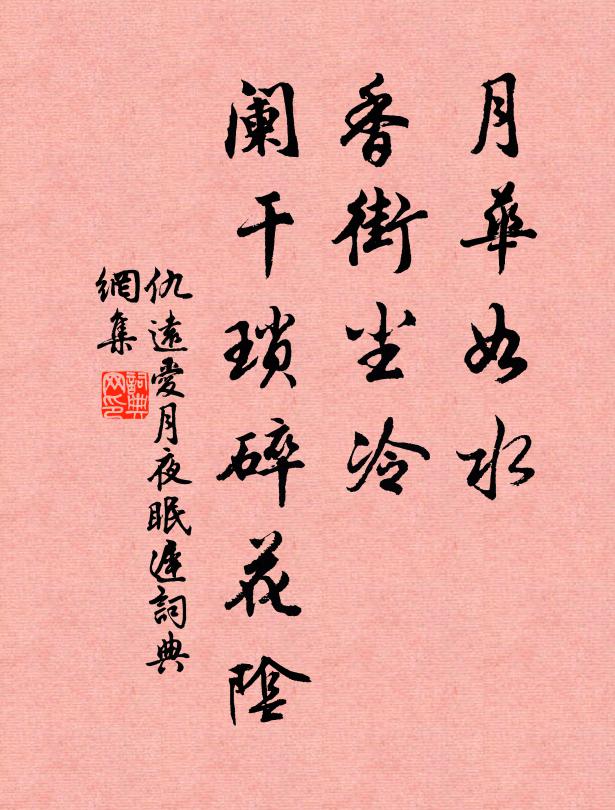 月華如水
香街尘冷
阑干瑣碎花陰
仇遠愛月夜眠遲詞典
網集
詞典
网印